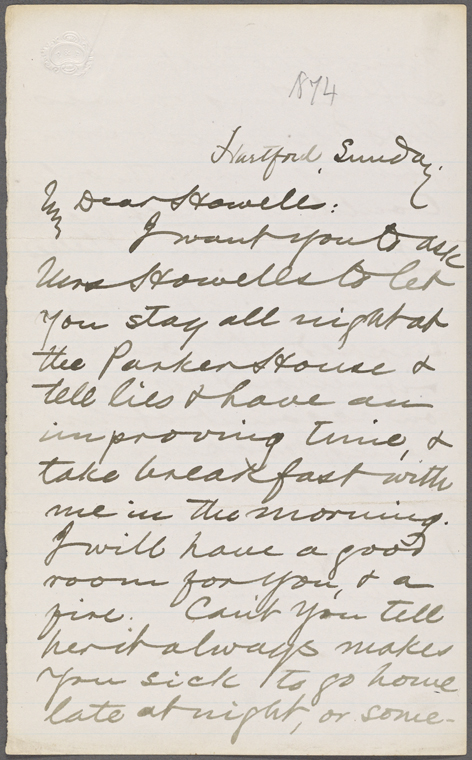 1874
Hartford, Sunday.
My Dear Howells:
I want you to ask
Mrs Howells to let
you stay all night at
the Parker House &
tell lies & have an
improving time, &
take breakfast with
me in the morning.
I will have a good
room for you, & a
fire. Can't you tell
her it always makes
you sick to go home
late at night, or some-